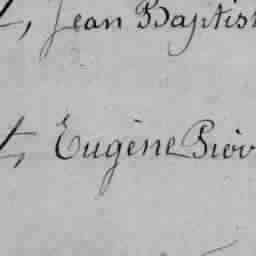 t, Jean Baptist
t, Eugène Piér